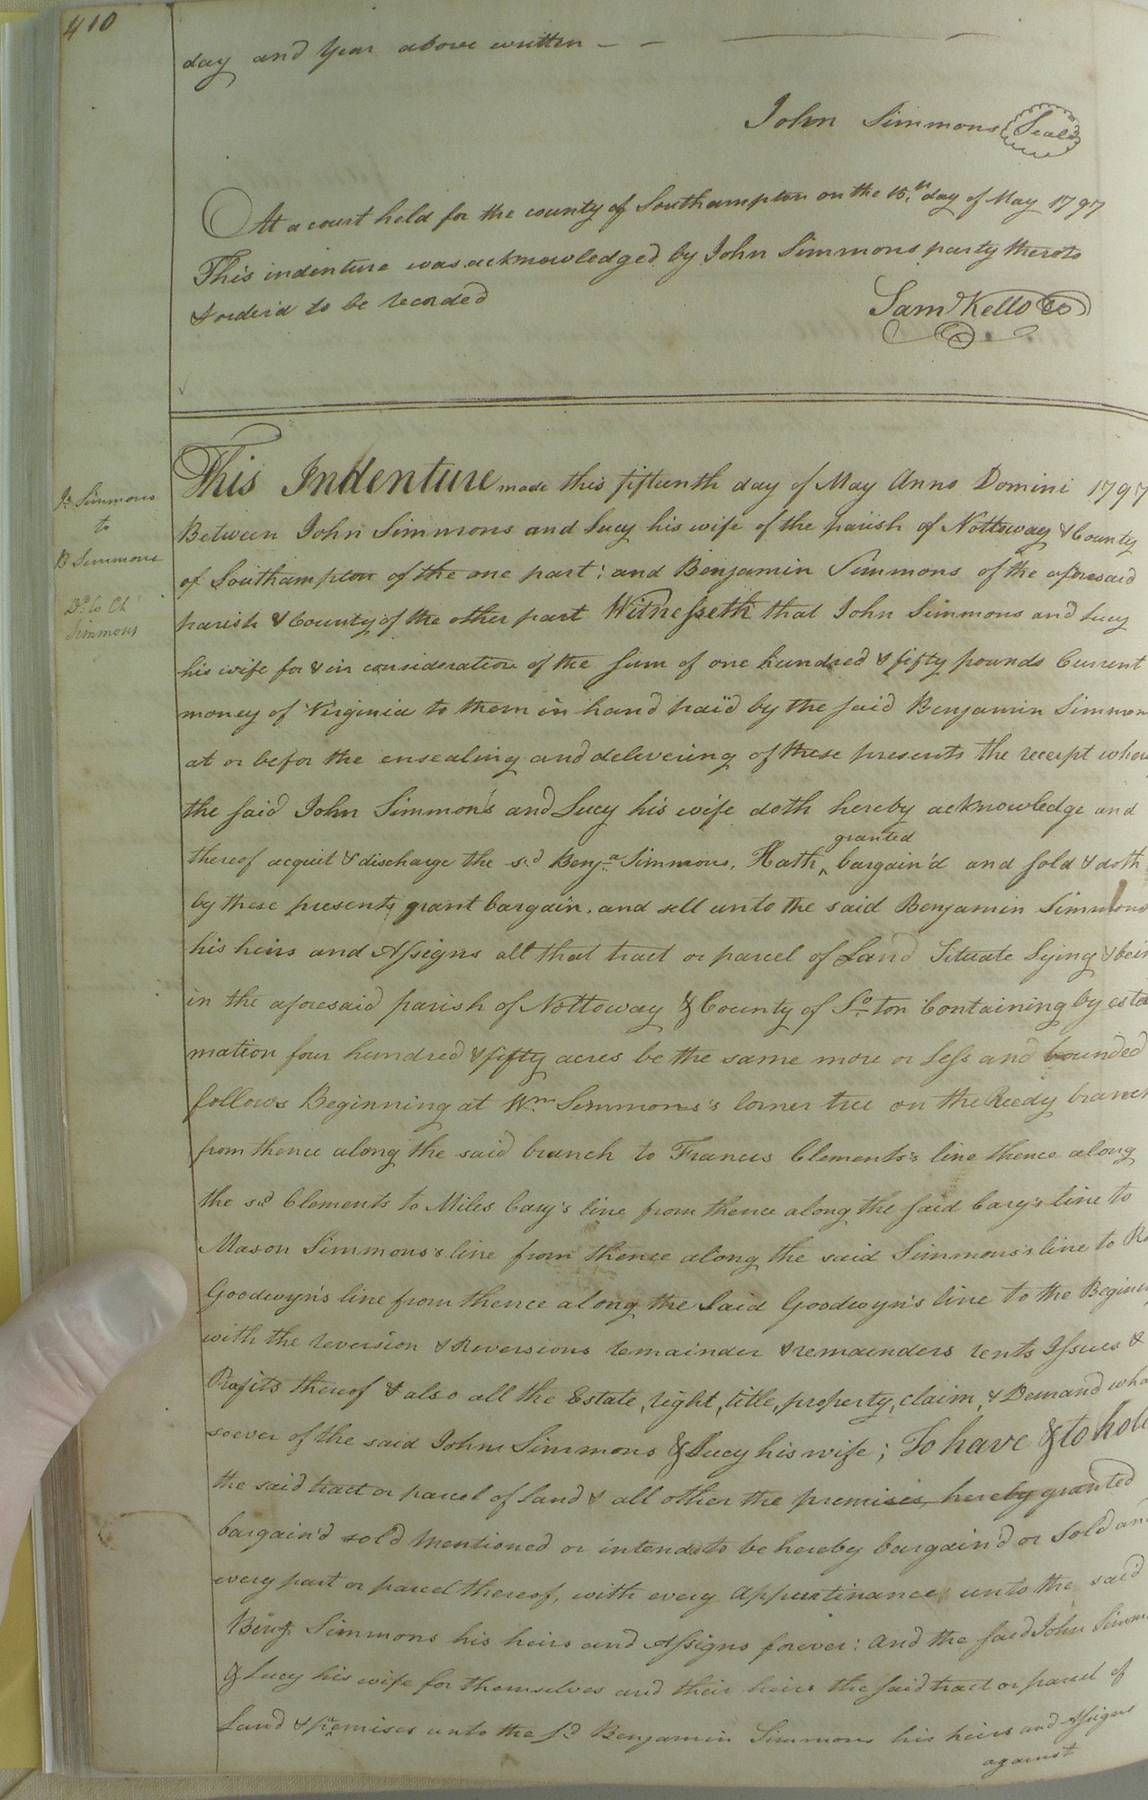 410
day and Year above written
John Simmons Seal
At a court held for the county of Southampton on the 15th day of May 1797
This indenture was acknowledged by John Simmons party thereto
& order'd to be recorded
Saml Kello CC
Jn Simmons
to
B Simmons
Simmons
This Indenture made this fifteenth day of May Anno Domini 1797
Between John Simmons and Lucy his wife of the parish of Nottoway & County
of Southampton of the one part; and Benjamin Simmons of the aforesaid
parish & County of the other part Witnesseth that John Simmons and Lucy
his wife for & in consideration of the sum of one hundred & fifty pounds Current
money of Virginia to them in hand paid by the said Benjamin Simmon
at or befor the ensealing and delivering of these presents the receipt wher
the said John Simmon's and Lucy his wife doth hereby acknowledge and
thereof acquit & discharge the sd Benja Simmons, Hath granted bargain'd and sold & doth
by these presents grant bargain, and sell unto the said Benjamin Simmons
his heirs and Assigns all that tract or parcel of Land Situate lying & bein
in the aforesaid parish of Nottoway & County of So ton Containing by esta
mation four hundred & fifty acres be the same more or less and bounded
follows Beginning at Wm Simmons's corner tree on the Reedy branch
from thence along the said branch to Francis Clements's line thence along
the sd Clements to Miles Cary's line from thence along the said Cary's line to
Mason Simmons's line from thence along the said Simmons's line to Ro
Goodwyn's line from thence along the Said Goodwyn's line to the Begini
with the reversion & Reversions remainder & remainders rents Issues &
Profits thereof & also all the Estate, right, title, property, claim, & Demand wha
soever of the said John Simmons & Lucy his wife; To have & to hold
the said tract or parcel of Land & all other the premises hereby granted
bargain'd sold mentioned or intended to be hereby bargain'd or Sold an
every part or parcel thereof, with every appurtinance unto the said
Benj. Simmons his heirs and Assigns forever: And the said John Simm
& Lucy his wife for themselves and their heirs the said tract or parcel of
Land & premises unto the sd Benjamin Simmons his heirs and Assigns
against